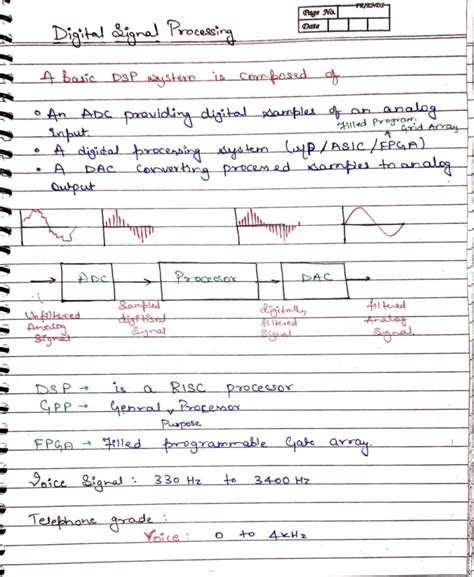 FRIENDS
Page No.
Date
Digital Signal Processing
A basic DSP system is composed of
• An ADC providing digital samples of an analog
input.
filled Program.
Grid Array
• A digital processing system (up/ASIC/FPGA)
• A DAC converting processed samples to analog
output
ADC
Processor
DAC
Unfiltered
Analog
Signal
Sampled
digitised
Signal
digitally
filtered
Signal
filtered
Analog
Signal
DSP → is a RISC processor
GPP → Genral Processor
Purpose
FPGA → filled programmable Gate array.
Voice Signal : 330 Hz to 3400 Hz
Telephone grade :
Voice : 0 to 4kHz